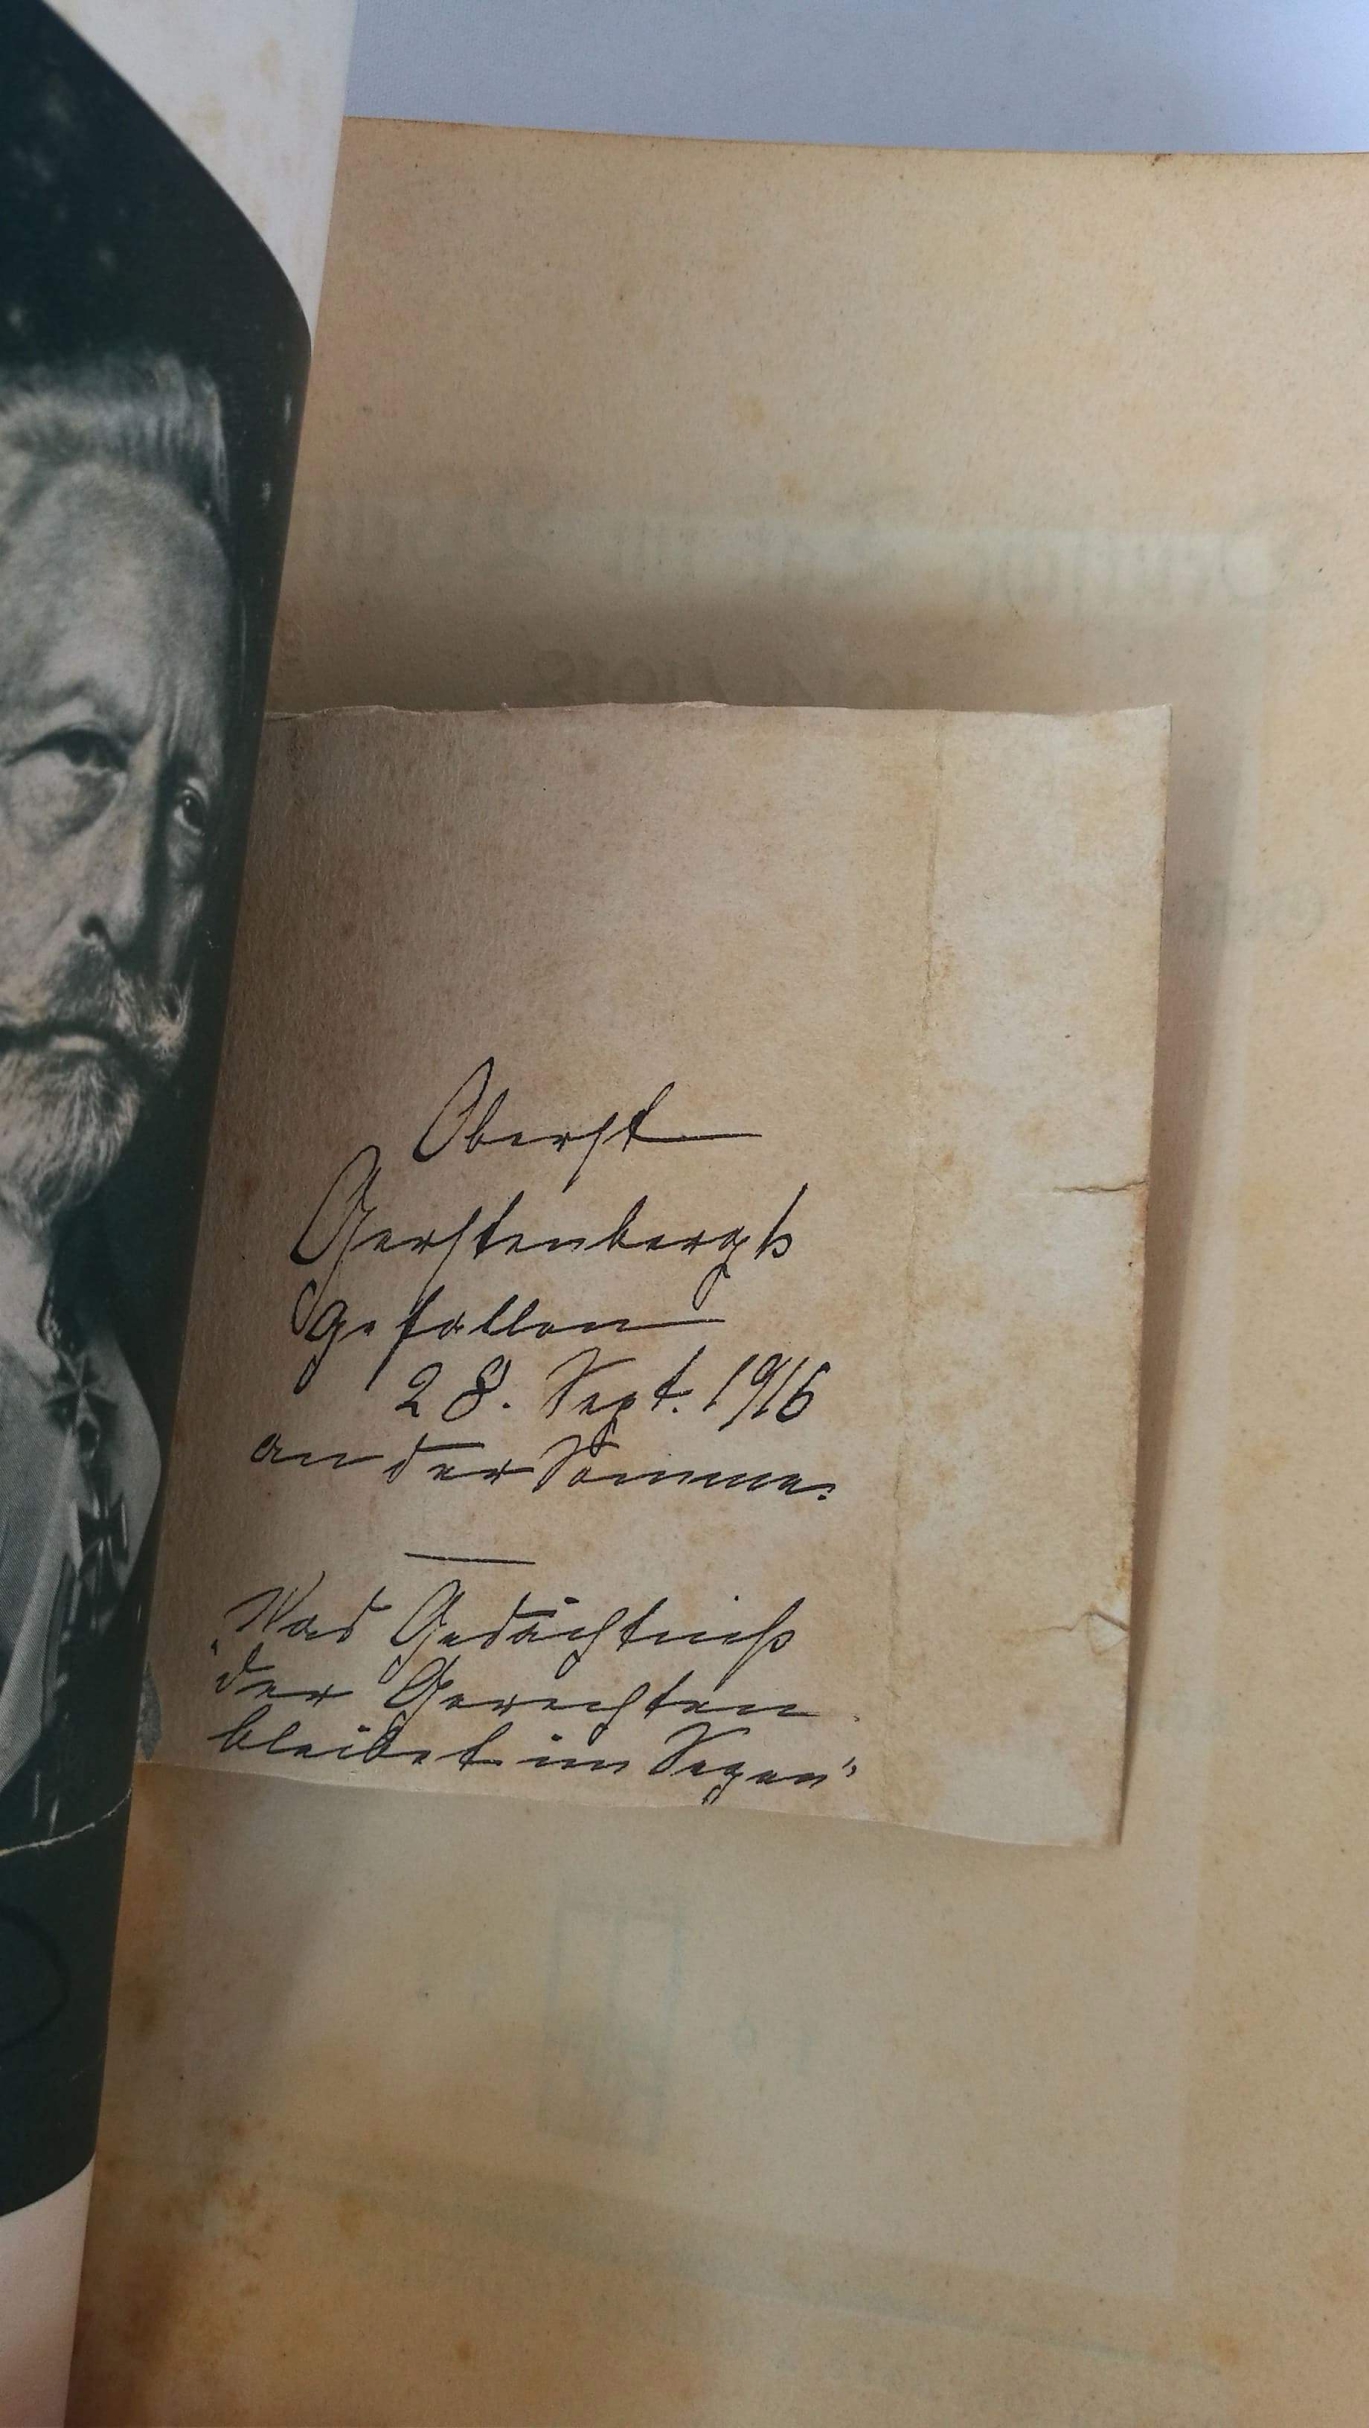 Oberst
Gerstenbergk
gefallen
28. Sept. 1916
an der Somme.
"Das Gedächtniß
der Gerechten
bleibet im Segen"